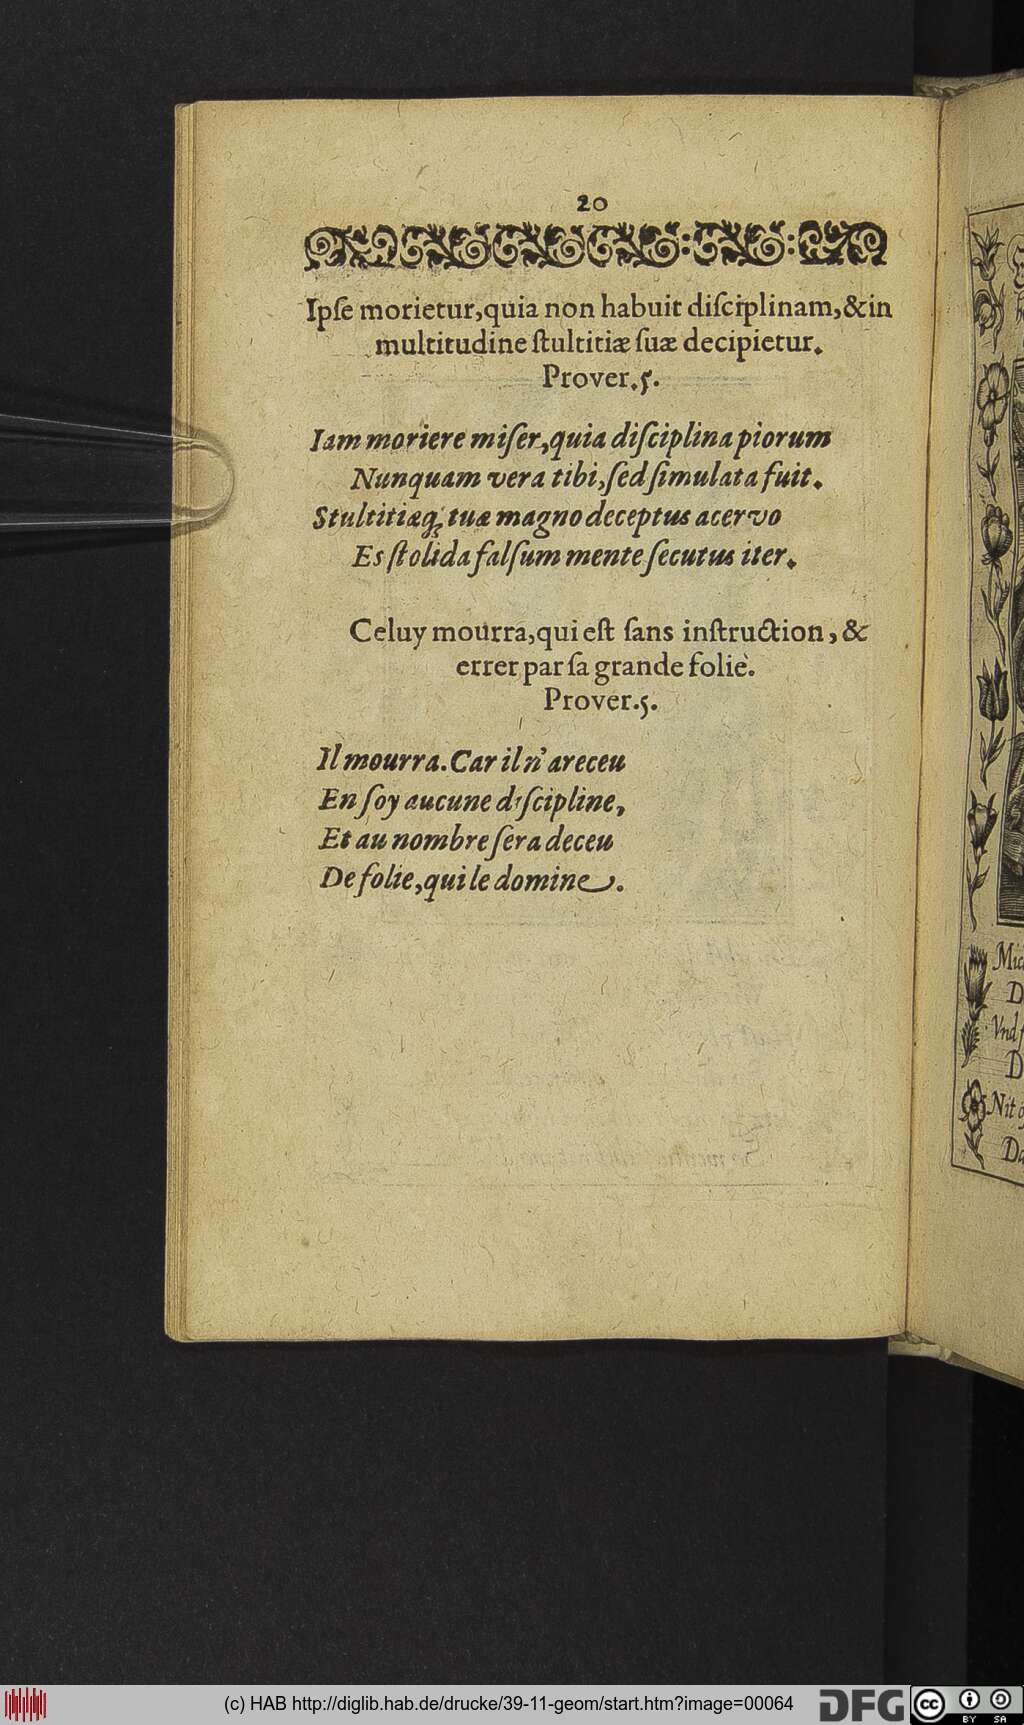 20
Ipſe morietur,quia non habuit diſciplinam,&in
multitudine ſtultitiæ ſuæ decipietur.
Prover.5.
Iam moriere miſer,quia diſciplina piorum
Nunquam vera tibi,ſed ſimulata fuit.
Stultitiæq; tuæ magno deceptus acervo
Es ſtolida falſum mente ſecutus iter.
Celuy mourra,qui eſt ſans inſtruction, &
errer par ſa grande foliè.
Prover.5.
Il mourra. Car il n'a receu
En ſoy aucune diſcipline,
Et au nombre ſera deceu
De folie,qui le domine.
Mic
D
Vnd ſ
D
Nit
Da
(c) HAB http://diglib.hab.de/drucke/39-11-geom/start.htm?image=00064
DFG
cc
BY SA